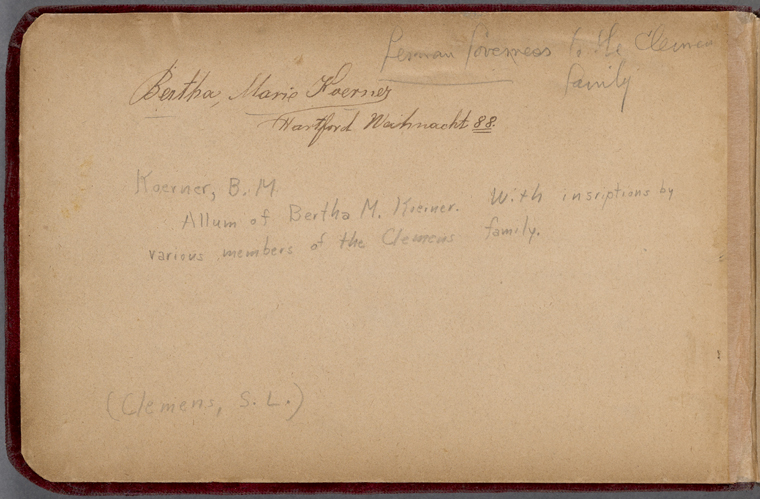 German Governess to the Clemens
family
Bertha Marie Koerner
Hartford Weihnacht 88.
Koerner, B. M.
Allum of Bertha M. Koerner. With insriptions by
various members of the Clemens family.
(Clemens, S. L.)